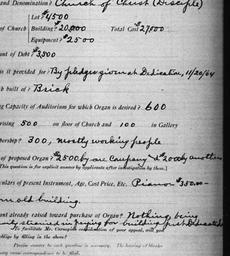 and Denomination? Church of Christ (Disciple)
Lot $4500
of Church Building? 20,000 Total Cost 27,000
Equipment? $2500
unt of Debt? $3,500
is it provided for? By pledges given at Dedication, 11/20/04
h built of? Brick
ng Capacity of Auditorium for which Organ is desired? 600
rising 500 on floor of Church and 100 in Gallery
rship? 300, mostly working people
of proposed Organ? $2500 by one Company & $2000 by another
(This question is for explicit answer by applicants after investigation by them.)
culars of present Instrument, Age, Cost Price, Etc. Piano $350.00
old building.
nt already raised toward purchase of Organ? Nothing being
in paying for building just Dedicated
To facilitate Mr. Carnegie's consideration of your appeal, will you
oblige by filling in the above?